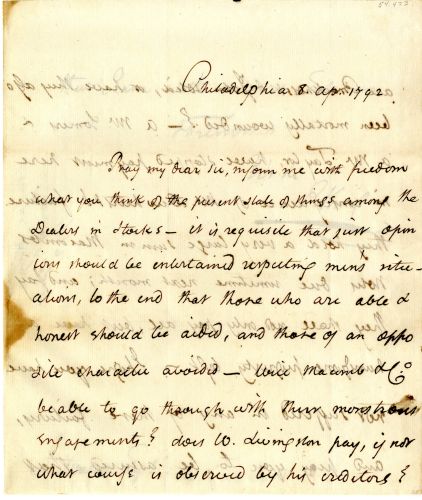 54.473
Philadelphia 8 Apr. 1792.
Pray my dear Sir, inform me with freedom
what you think of the present state of things among the
Dealers in Stocks – it is requisite that just opin
ions should be entertained respecting men's situ-
ations, to the end that those who are able &
honest should be aided, and those of an oppo
site character avoided – Will Macomb & Co.
be able to go through with their monstrous
engagements? does W. Livingston pay, if not
what course is observed by his creditors?